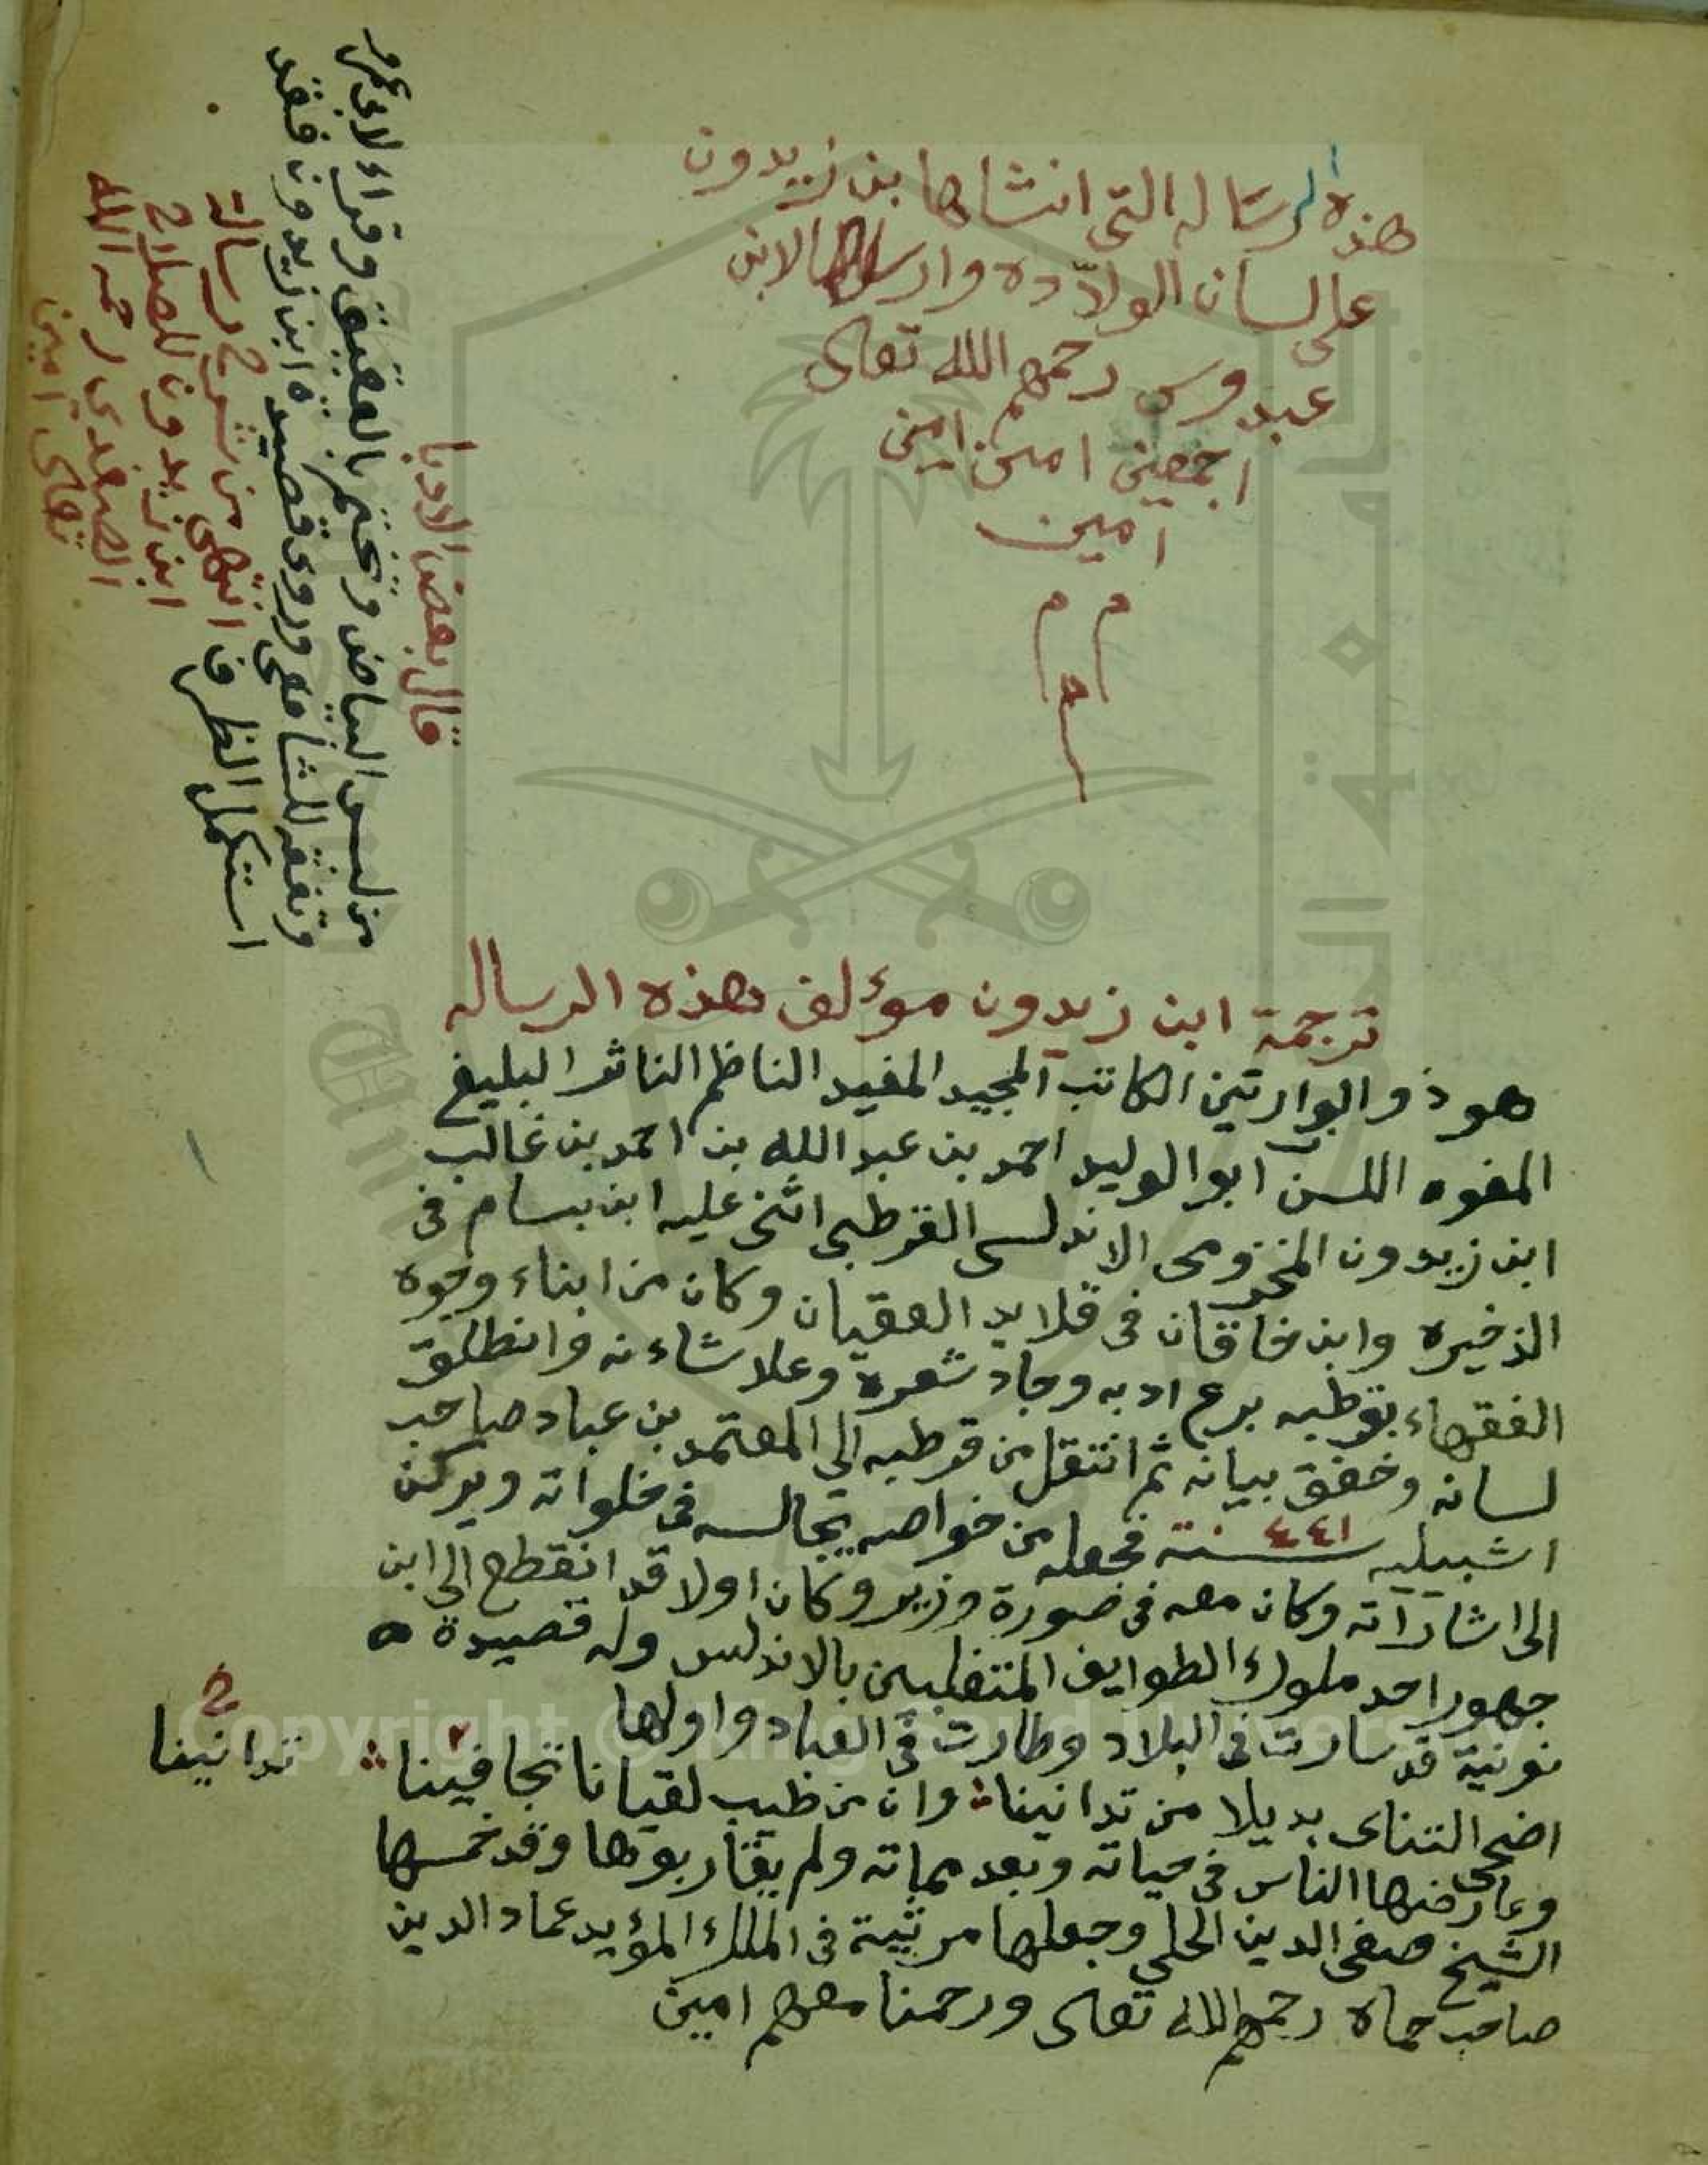 هذه الرساله التى انشاها بن زيدون
على لسان الولاّده وارسلها لابن
عبدوس رحمهم الله تعالى
اجمعين امين امين
امين
م م
م
قال بعض الادبا
من لبس البياض وتختم بالعقيق وقراء لابى عمرو
وتفقه للشافعى وروى قصيدة ابن زيدون فقد
استكمل الظرف انتهى من شرح رسالة
ابن زيدون للصلاح
الصفدى رحمه الله
تعالى امين
ترجمة ابن زيدون مؤلف هذه الرساله
هو ذو الوزارتين الكاتب المجيد المفيد الناظم الناثر البليغ
المفوه اللسن ابو الوليد احمد بن عبد الله بن احمد بن غالب
ابن زيدون المخزومى الاندلسى القرطبى اثنى عليه ابن بسام فى
الذخيره وابن خاقان فى قلايد العقيان وكان من ابناء وجوه
الفقهاء بقرطبه برع ادبه وجاد شعره وعلا شاءنه وانطلق
لسانه وخفق بيانه ثم انتقل من قرطبه الى المعتمد بن عباد صاحب
اشبيليه سنة ٤٤١ فجعله من خواصه يجالسه فى خلواته ويركن
الى اشاراته وكان معه فى صورة وزير وكان اولا قد انقطع الى ابن
جهور احد ملوك الطوايف المتغلبين بالاندلس وله قصيدة
نونية قد سارت فى البلاد وطارت فى العباد واولها
اضحى التنائى بديلا من تدانينا وان من طيب لقيانا تجافينا
تدانينا
وعارضها الناس فى حياته وبعد مماته ولم يقاربوها وقد خمسها
الشيخ صفى الدين الحلى وجعلها مرثية فى الملك المؤيد عماد الدين
صاحب حماه رحمهم الله تعالى ورحمنا معهم امين
Copyright © King Saud University